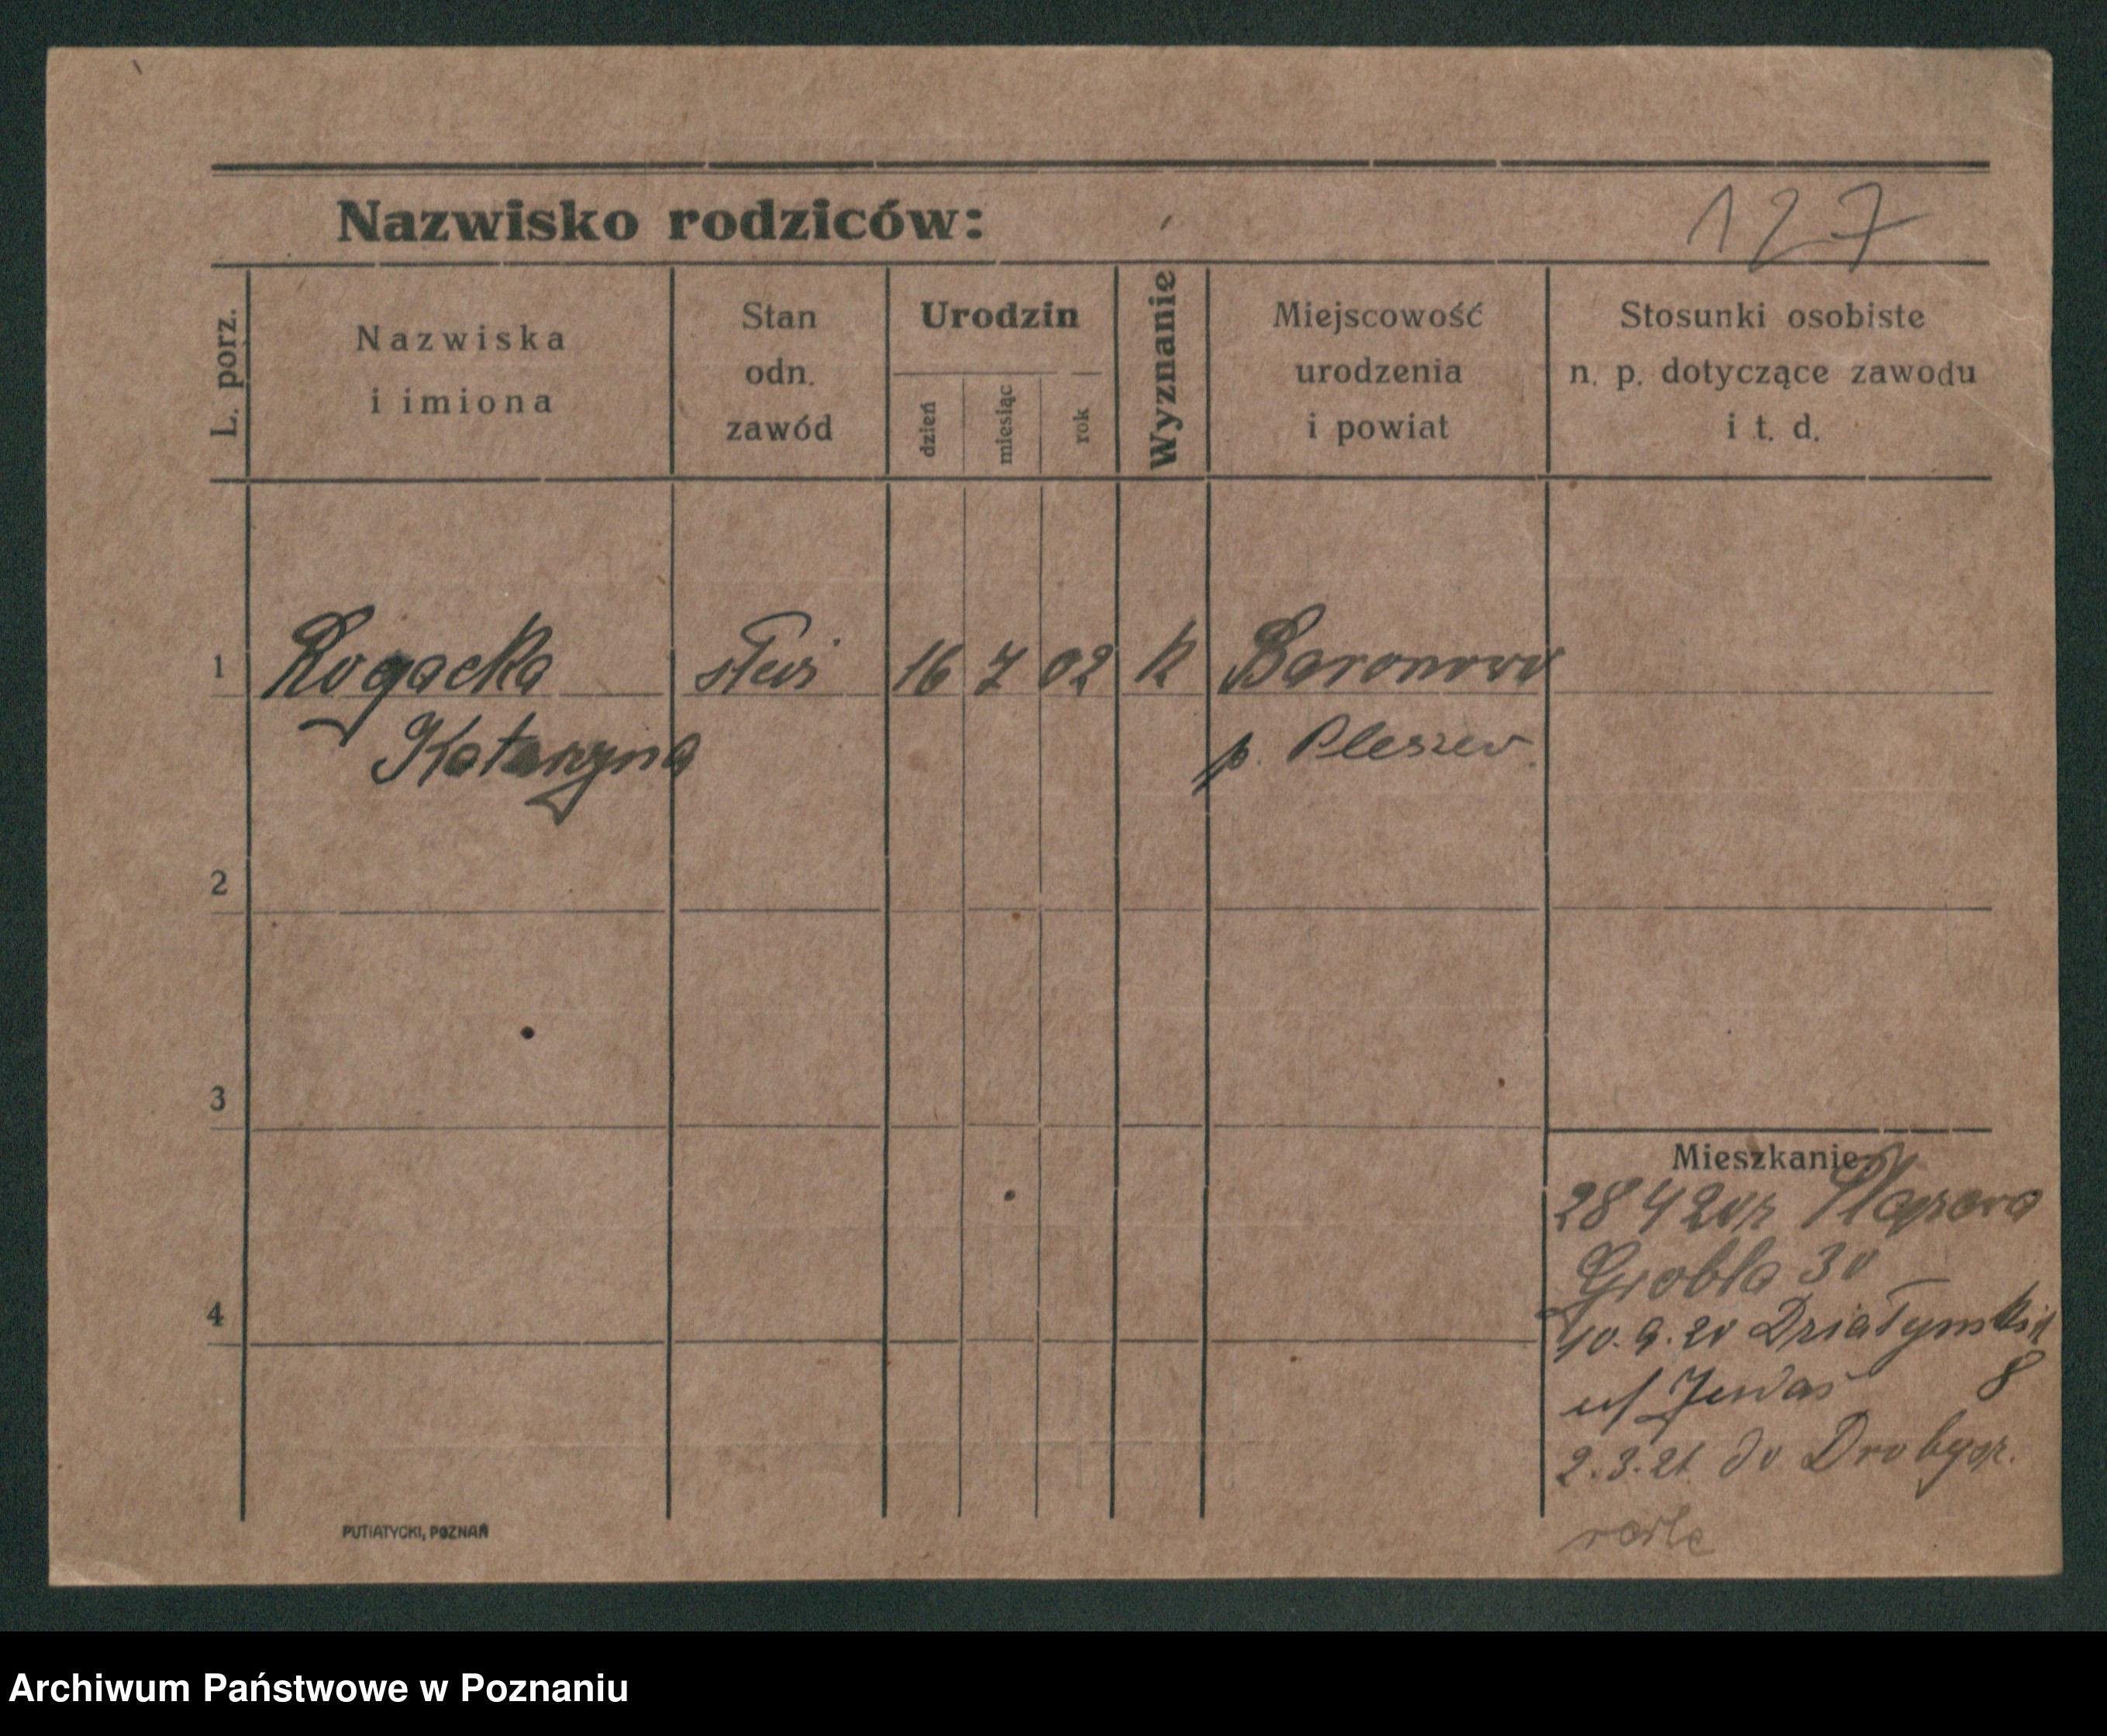 Nazwisko rodziców:
127
L. porz.
Nazwiska
i imiona
Stan
odn.
zawód
Urodzin
dzień
miesiąc
rok
Wyznanie
Miejscowość
urodzenia
i powiat
Stosunki osobiste
n. p. dotyczące zawodu
i t. d.
1 Rogacka 16 7 02 k Baronow
Katarzyna p. Pleszew.
2
3
4
Mieszkanie
28 4 20
Grobla 30
10.9.20 Działyńskich
8
2.3.21. do
PUTIATYCKI, POZNAŃ
Archiwum Państwowe w Poznaniu